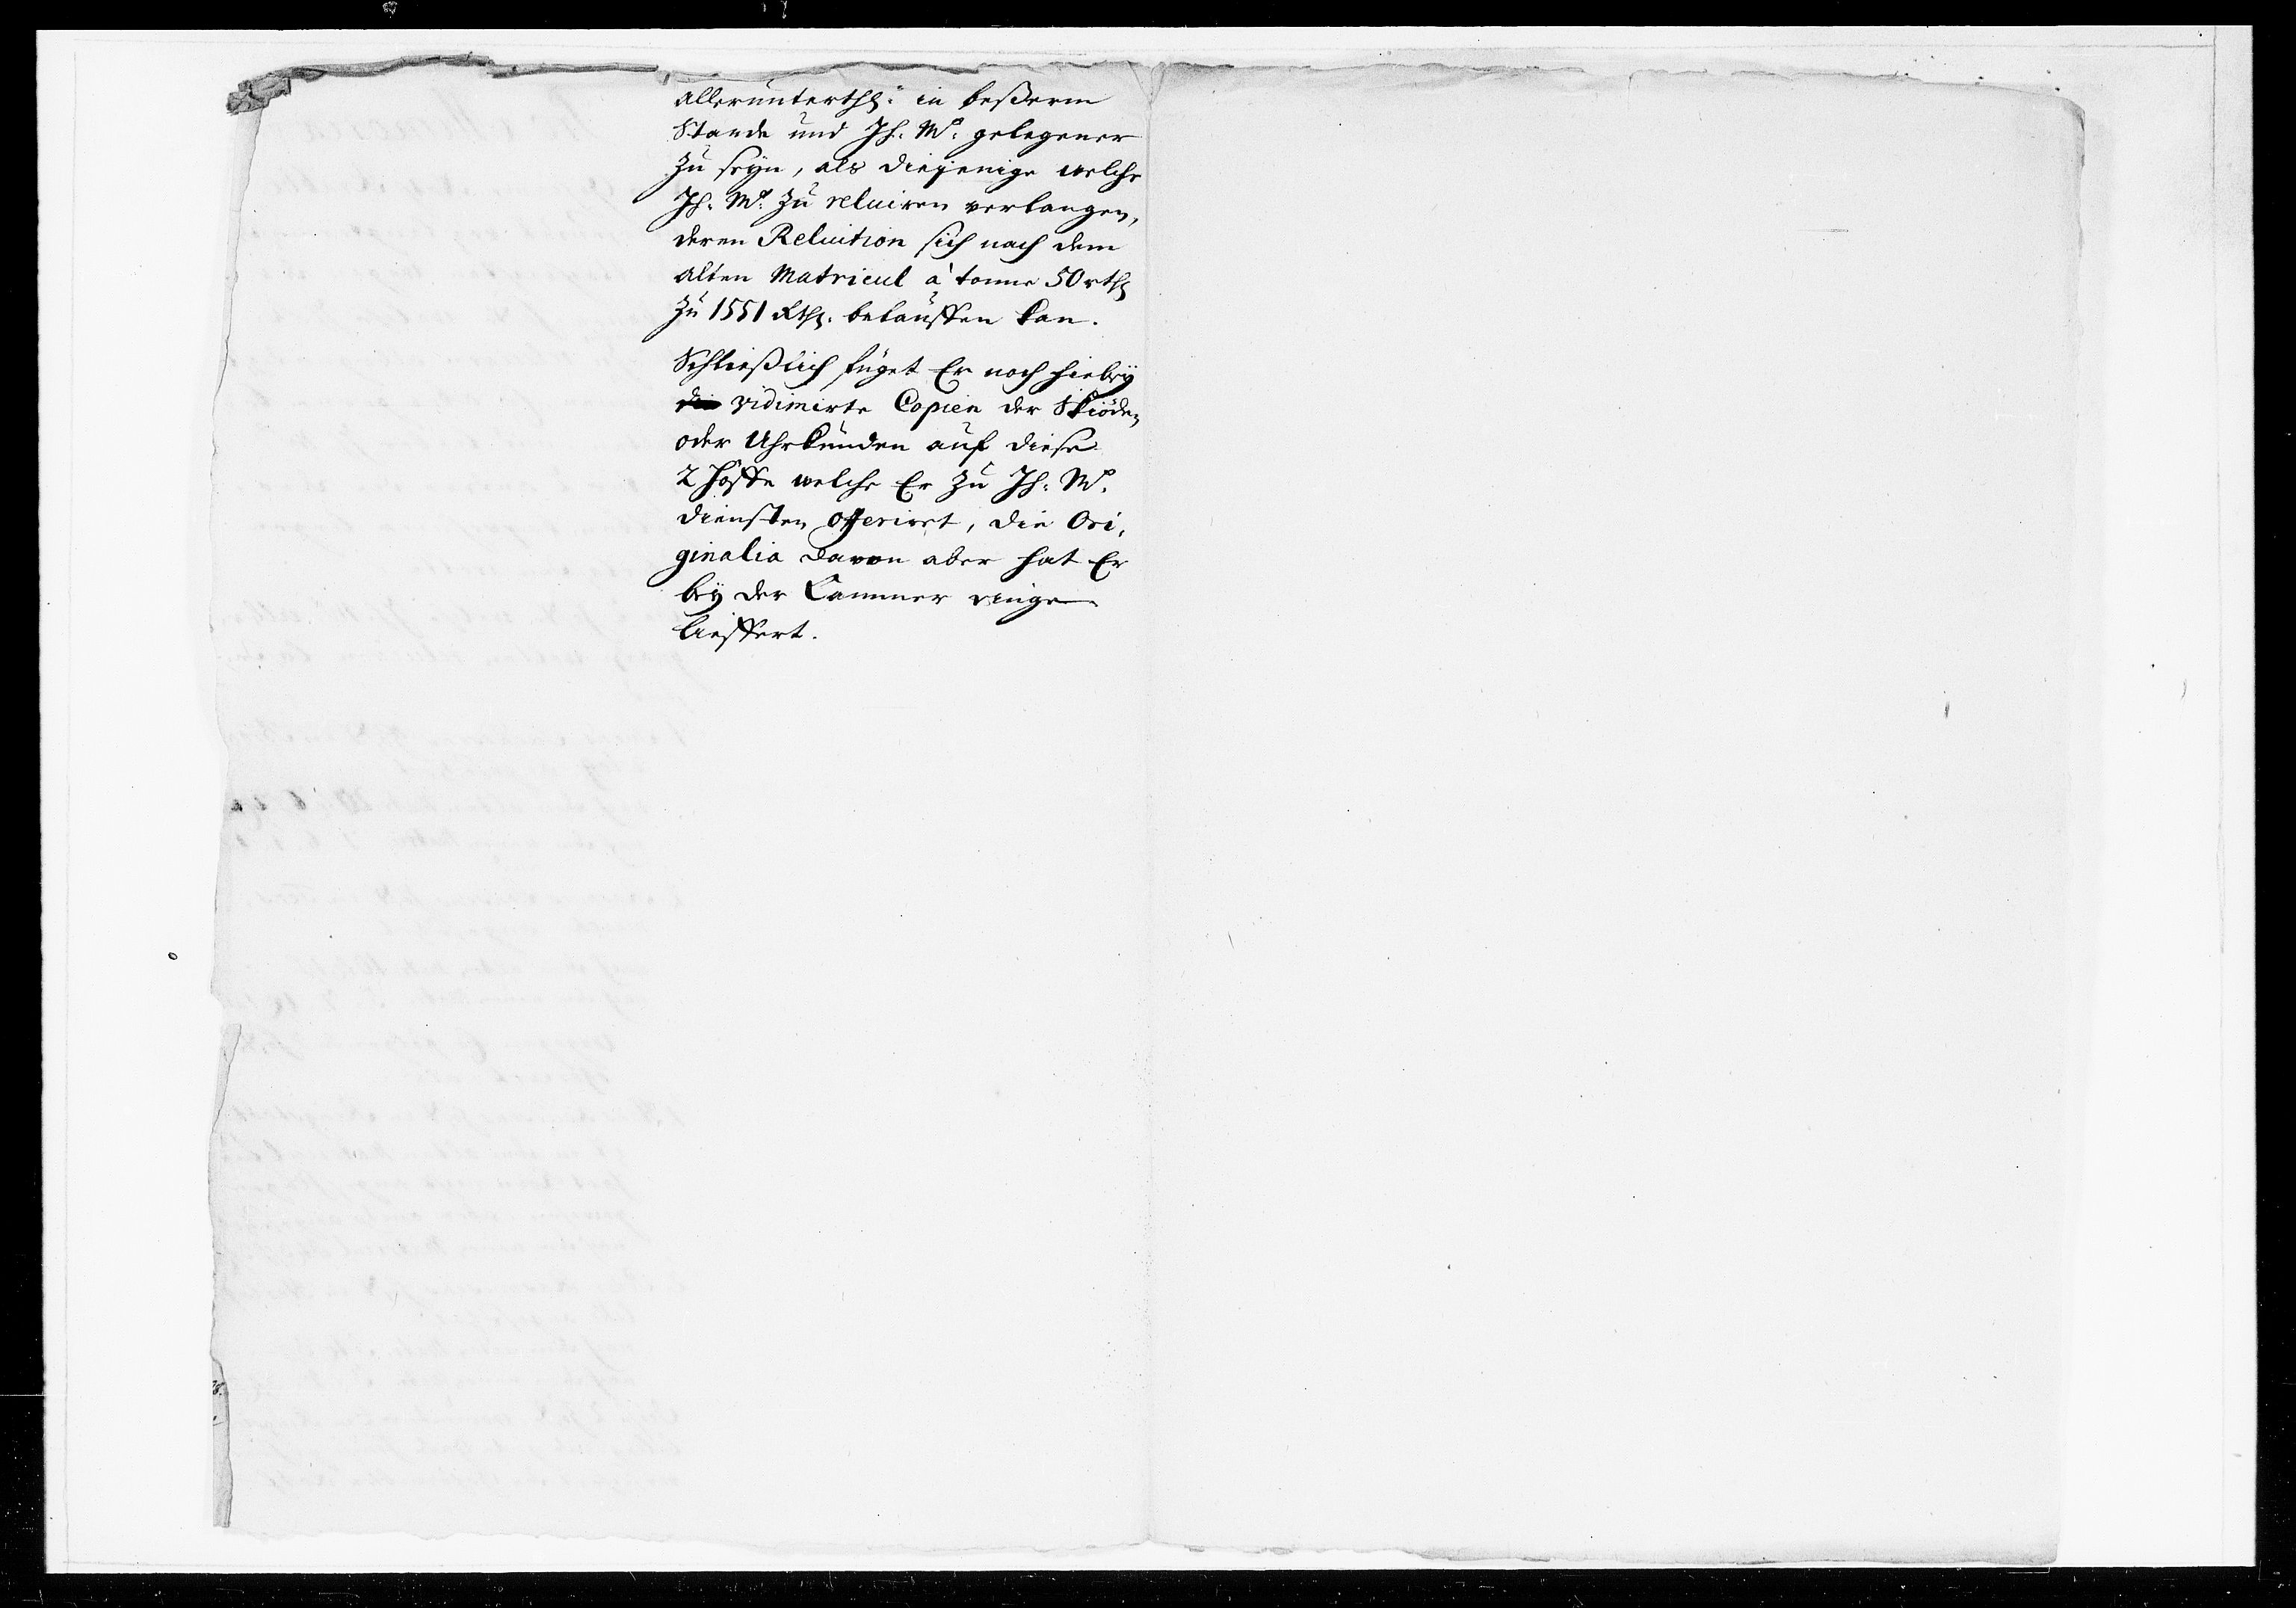 allerunterthg: in beßerm
Stande und Ih: Mt: gelegener
zu seyn, als diejenige welche
Ih: Mt: zu reluiren verlangen,
deren Reluition sich nach dem
alten Matricul à tonne 50 rthl
zu 1551 Rthl. belauffen kan.
Schließlich füget Er noch hiebey
die vidimirte Copien der Skiöden
oder Uhrkunden auf diese
2 Höffe welche Er zu Ih: Mt:
diensten offerirt, die Ori,
ginalia davon aber hat Er
bey der Cammer einge
lieffert.